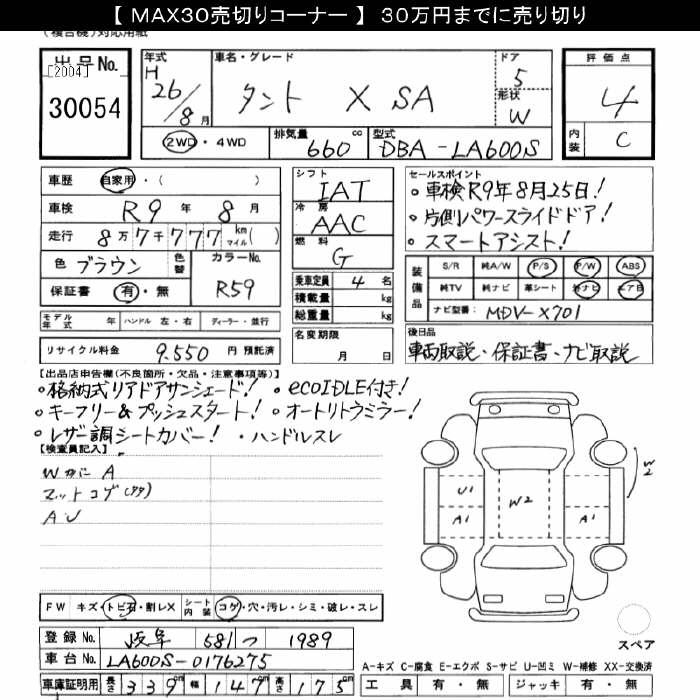 【 MAX30売切りコーナー 】 30万円までに売り切り
(複合機)対応用紙
出品No. [2004] 30054
年式 H 26/8月
車名・グレード タント X SA
ドア 5
形状 W
評価点 4
内装 C
2WD・4WD
排気量 660 cc
型式 DBA-LA600S
車歴 自家用・( )
車検 R9年 8月
走行 8万7千777 km マイル( )
色 ブラウン 色替 カラーNo. R59
保証書 有・無
シフト IAT
冷房 AAC
燃料 G
乗車定員 4名
積載量 kg
総重量 kg
セールスポイント
○車検R9年8月25日!
○片側パワースライドドア!
○スマートアシスト!
装備品 S/R 純A/W P/S P/W ABS
純TV 純ナビ 革シート 外ナビ エア日
ナビ型番: MDV-X701
モデル年式 年 ハンドル 左・右 ディーラー・並行
名変期限 月 日
後日品
車両取説・保証書・ナビ取説
リサイクル料金 9.550円 預託済
【出品店申告欄(不良箇所・欠品・注意事項等)】
○格納式リアドアサンシェード! ○ecoIDLE付き!
○キーフリー&プッシュスタート! ○オートリトラミラー!
○レザー調シートカバー! ・ハンドルスレ
【検査員記入】
Wかに A
マットコゲ(タタ)
AU
U1 A1 W2 A1 W2
FW キズ・トビ石・割レX シート内装 コゲ・穴・汚レ・シミ・破レ・スレ
スペア
登録No. 岐阜 581 つ 1989
車台No. LA600S-0176275
A-キズ C-腐食 E-エクボ S-サビ U-凹ミ W-補修 XX-交換済
車庫証明用 長さ 339cm 幅 147cm 高さ 175cm
工具 有・無 ジャッキ 有・無